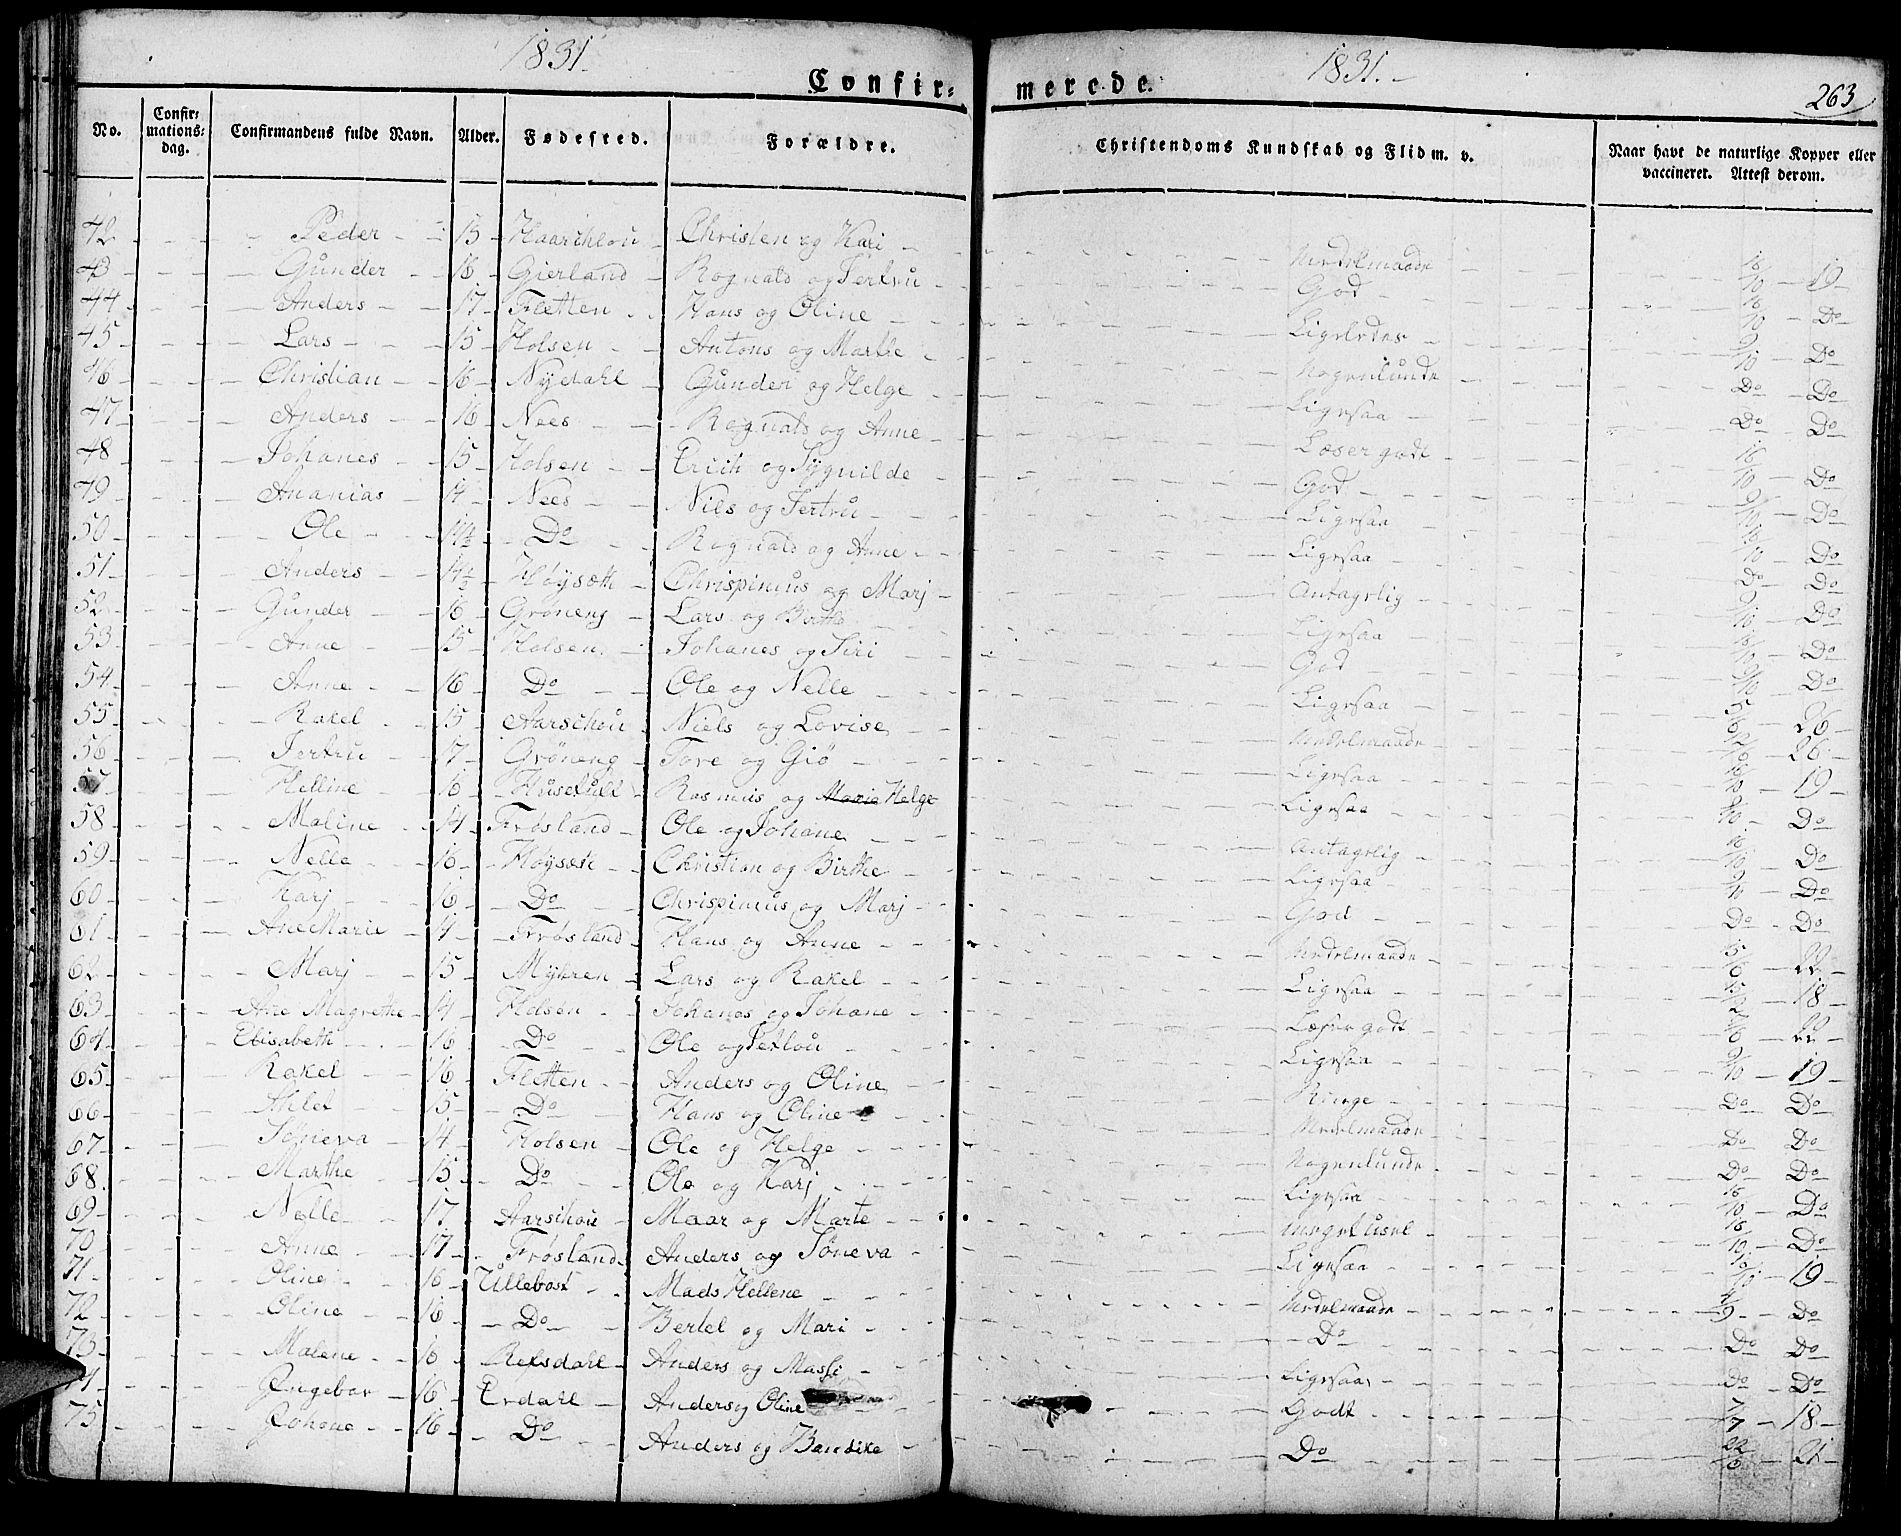 1831.
1831.
Confir=
merede.
263
No.
Confir=
mations=
dag.
Confirmandens fulde Navn.
Alder.
Fødested.
Forældre.
Christendoms Kundskab og Flid m. v.
Naar havt de naturlige Kopper eller
vaccineret. Attest derom.
42 Peder 15 Christen og Kari Medelmaade 16/10 19
43 Gunder 16 Gierland Rognald og Jertru God 16/10 Do
44 Anders 17 Fletten Hans og Oline Ligeledes 9/10 Do
45 Lars 15 Holsen Antons og Marthe Nogenlunde Do Do
46 Christian 16 Nÿedahl Gunder og Helge Ligesaa Do Do
47 Anders 16 Nees Rognald og Anne Læser godt 16/10 Do
48 Johanes 15 Holsen Erich og God 9/10 Do
49 Ananias 14 Nees Niels og Jertru Ligesaa 16/10 Do
50 Ole 14½ Do Rognald og Anne Ligesaa Do Do
51 Anders 14½ Høÿsæth Chrispinius og Marj Antagelig 9/10 Do
52 Gunder 16 Grøneng Lars og Birthe Ligesaa 16/10 Do
53 Anne 15 Holsen Johanes og Siri God 9/10 Do
54 Anne 16 Do Ole og Nelle Ligesaa 5/6 26
55 Rakel 15 Aarschou Niels og Lovise Medelmaade 26
56 Jertru 17 Grøneng Tore og Giø Ligesaa 19
57 Helline 16 Rasmus og Helge Ligesaa 9/10 Do
58 Maline 14 Frøsland Ole og Johane Antagelig 16/10 Do
59 Nelle 16 Høÿsæt Christian og Birthe Ligesaa 9/10 Do
60 Karj 16 Do Chrispinius og Marj God Do Do
61 Ane Marie 14 Frøsland Hans og Anne Medelmaade 22
62 Marj 15 Mÿhren Lars og Rakel Ligesaa 18
63 Ane Magrethe 14 Holsen Johanes og Johane Læser godt 22
64 Elisabeth 16 Do Ole og Ligesaa 9/10 19
65 Rakel 16 Fletten Anders og Oline Ringe Do Do
66 15 Do Hans og Oline Medelmaade Do Do
67 Søneva 14 Holsen Ole og Helge Nogenlunde Do Do
68 Marthe 15 Do Ole og Karj Ligesaa 16/10 Do
69 Nelle 17 Aarschou Maar og Marte meget usel 16/10 Do
70 Anne 17 Frøsland Anders og Søneva Ligesaa 19
71 Oline 16 Ullebost Mads Hellene Medelmaade Do
72 Oline 16 Do Bertel og Mari Do Do Do
73 Malene 16 Refsdahl Anders og Massi Ligesaa Do Do
74 Ingebor 16 Erdahl Anders og Oline Godt 7/7 18
75 Johane 16 Do Anders og Bendike Do 22/6 21